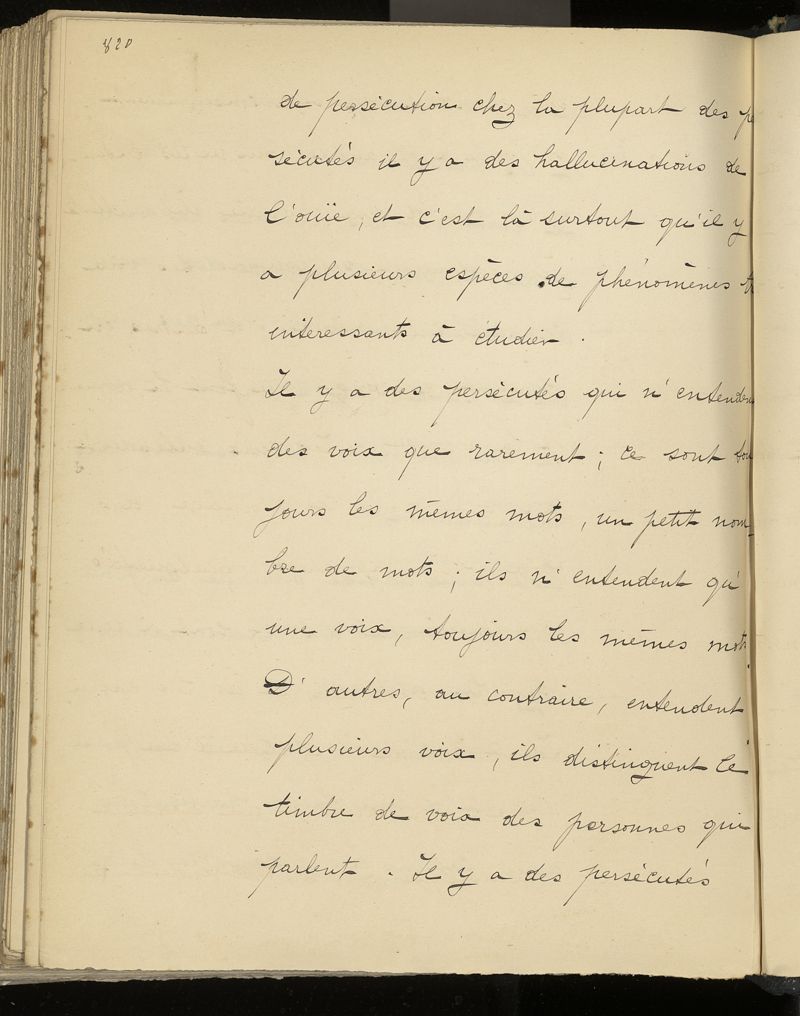 820
de persécution chez la plupart des pe
sécutés il y a des hallucinations de
l'ouïe, et c'est là surtout qu'il y
a plusieurs espèces de phénomènes t
interessants à étudier.
Il y a des persécutés qui n'entenden
des voix que rarement; ce sont tou
jours les mêmes mots, un petit nom-
bre de mots; ils n'entendent qu'
une voix, toujours les mêmes mots.
D'autres, au contraire, entendent
plusieurs voix, ils distinguent le
timbre de voix des personnes qui
parlent. Il y a des persécutés